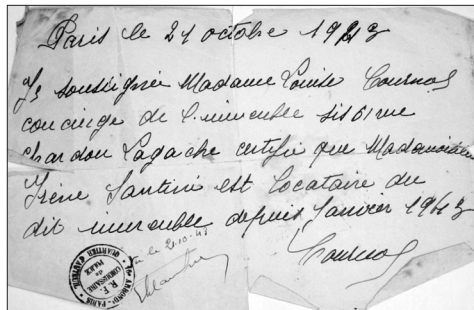 Paris le 21 octobre 1943
Je soussignée Madame Louise Cournol
concierge de l'immeuble sis 61 rue
chardon Lagache certifie que Mademoiselle
Irène Santini est locataire du
dit immeuble depuis Janvier 1943
le 21-10-43
Cournol
16e ARRONDt - PARIS
QUARTIER D'AUTEUIL
R.F.
COMMISSAIRE
de
POLICE